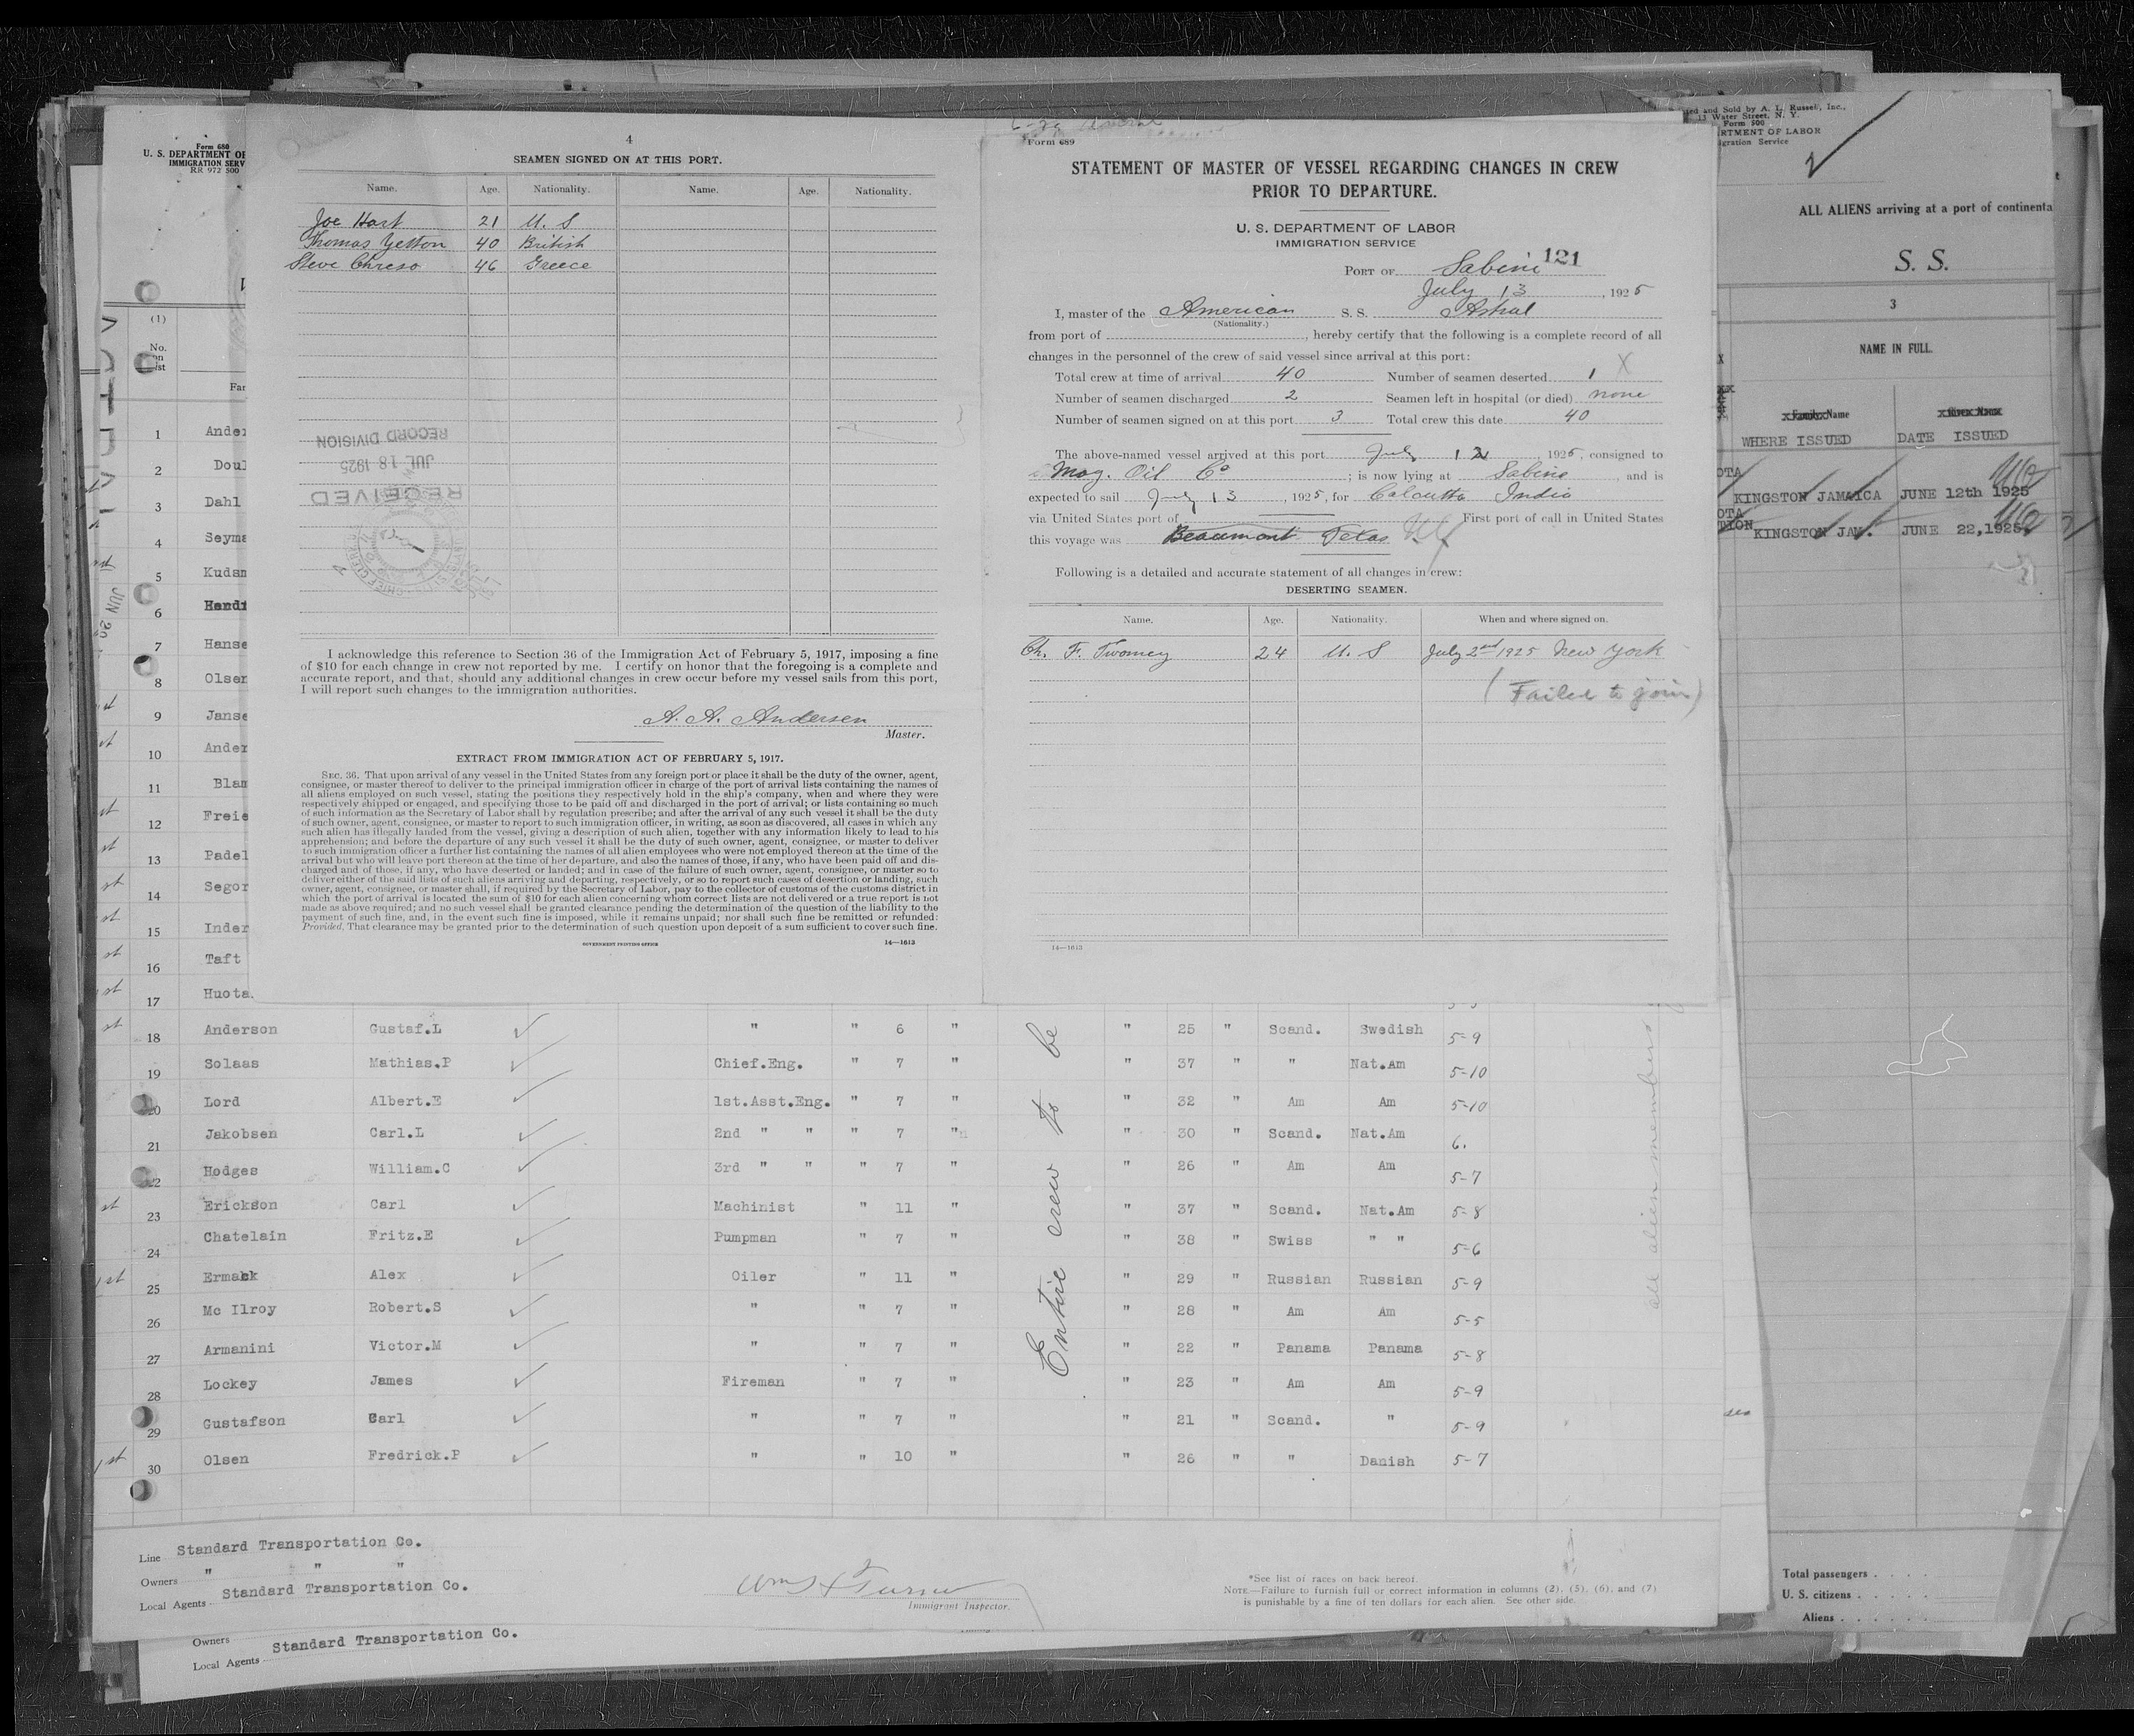 4
SEAMEN SIGNED ON AT THIS PORT.
Name. Age. Nationality. Name. Age. Nationality.
Joe Hart 21 U. S
Thomas Yetton 40 British
Steve Chreso 46 Greece
RECORD DIVISION
JUL 18 1925
RECEIVED
I acknowledge this reference to Section 36 of the Immigration Act of February 5, 1917, imposing a fine
of $10 for each change in crew not reported by me. I certify on honor that the foregoing is a complete and
accurate report, and that, should any additional changes in crew occur before my vessel sails from this port,
I will report such changes to the immigration authorities.
A. A. Andersen
Master.
EXTRACT FROM IMMIGRATION ACT OF FEBRUARY 5, 1917.
SEC. 36. That upon arrival of any vessel in the United States from any foreign port or place it shall be the duty of the owner, agent,
consignee, or master thereof to deliver to the principal immigration officer in charge of the port of arrival lists containing the names of
all aliens employed on such vessel, stating the positions they respectively hold in the ship's company, when and where they were
respectively shipped or engaged, and specifying those to be paid off and discharged in the port of arrival; or lists containing so much
of such information as the Secretary of Labor shall by regulation prescribe; and after the arrival of any such vessel it shall be the duty
of such owner, agent, consignee, or master to report to such immigration officer, in writing, as soon as discovered, all cases in which any
such alien has illegally landed from the vessel, giving a description of such alien, together with any information likely to lead to his
apprehension; and before the departure of any such vessel it shall be the duty of such owner, agent, consignee, or master to deliver
to such immigration officer a further list containing the names of all alien employees who were not employed thereon at the time of the
arrival but who will leave port thereon at the time of her departure, and also the names of those, if any, who have been paid off and dis-
charged and of those, if any, who have deserted or landed; and in case of the failure of such owner, agent, consignee, or master so to
deliver either of the said lists of such aliens arriving and departing, respectively, or so to report such cases of desertion or landing, such
owner, agent, consignee, or master shall, if required by the Secretary of Labor, pay to the collector of customs of the customs district in
which the port of arrival is located the sum of $10 for each alien concerning whom correct lists are not delivered or a true report is not
made as above required; and no such vessel shall be granted clearance pending the determination of the question of the liability to the
payment of such fine, and, in the event such fine is imposed, while it remains unpaid; nor shall such fine be remitted or refunded:
Provided, That clearance may be granted prior to the determination of such question upon deposit of a sum sufficient to cover such fine.
GOVERNMENT PRINTING OFFICE 14—1613
Form 689
STATEMENT OF MASTER OF VESSEL REGARDING CHANGES IN CREW
PRIOR TO DEPARTURE.
U. S. DEPARTMENT OF LABOR
IMMIGRATION SERVICE
PORT OF Sabine 121
July 13, 1925
I, master of the American S. S. Astral
(Nationality.)
from port of , hereby certify that the following is a complete record of all
changes in the personnel of the crew of said vessel since arrival at this port:
Total crew at time of arrival 40 Number of seamen deserted 1 X
Number of seamen discharged 2 Seamen left in hospital (or died) none
Number of seamen signed on at this port 3 Total crew this date 40
The above-named vessel arrived at this port July 12, 1925, consigned to
Mag. Oil Co; is now lying at Sabine, and is
expected to sail July 13, 1925, for Calcutta India
via United States port of First port of call in United States
this voyage was Beaumont Texas
Following is a detailed and accurate statement of all changes in crew:
DESERTING SEAMEN.
Name. Age. Nationality. When and where signed on.
Ch. F. Twomey 24 U. S July 2nd 1925 New York
(Failed to join)
14—1613
Form 680
U. S. DEPARTMENT OF
IMMIGRATION SERV
RR 972 500
(1)
No.
on
list
Far
1 Ander
2 Doul
3 Dahl
4 Seyma
5 Kudsm
6 Hendi
7 Hanse
8 Olsen
9 Janse
10 Ander
11 Blam
12 Freie
13 Padel
14 Segor
15 Inder
16 Taft
17 Huota
18 Anderson Gustaf.L " " 6 " " 25 " Scand. Swedish 5-9
19 Solaas Mathias.P Chief.Eng. " 7 " " 37 " " Nat.Am 5-10
20 Lord Albert.E 1st.Asst.Eng. " 7 " " 32 " Am Am 5-10
21 Jakobsen Carl.L 2nd " " " 7 " " 30 " Scand. Nat.Am 6.
22 Hodges William.C 3rd " " " 7 " " 26 " Am Am 5-7
23 Erickson Carl Machinist " 11 " " 37 " Scand. Nat.Am 5-8
24 Chatelain Fritz.E Pumpman " 7 " " 38 " Swiss " " 5-6
25 Ermack Alex Oiler " 11 " " 29 " Russian Russian 5-9
26 Mc Ilroy Robert.S " " 7 " " 28 " Am Am 5-5
27 Armanini Victor.M " " 7 " " 22 " Panama Panama 5-8
28 Lockey James Fireman " 7 " " 23 " Am Am 5-9
29 Gustafson Carl " " 7 " " 21 " Scand. " 5-9
30 Olsen Fredrick.P " " 10 " " 26 " " Danish 5-7
Entire crew to be
all alien members
Line Standard Transportation Co.
Owners " " "
Local Agents Standard Transportation Co.
Immigrant Inspector.
*See list of races on back hereof.
NOTE—Failure to furnish full or correct information in columns (2), (5), (6), and (7)
is punishable by a fine of ten dollars for each alien. See other side.
Owners
Local Agents Standard Transportation Co.
ed and Sold by A. L. Russel, Inc.,
13 Water Street, N. Y.
Form 500
ARTMENT OF LABOR
igration Service
ALL ALIENS arriving at a port of continenta
S. S.
3
NAME IN FULL
Family Name Given Name
WHERE ISSUED DATE ISSUED
OTA
KINGSTON JAMAICA JUNE 12th 1925
OTA
TION KINGSTON JAM. JUNE 22,1925.
Total passengers
U. S. citizens
Aliens